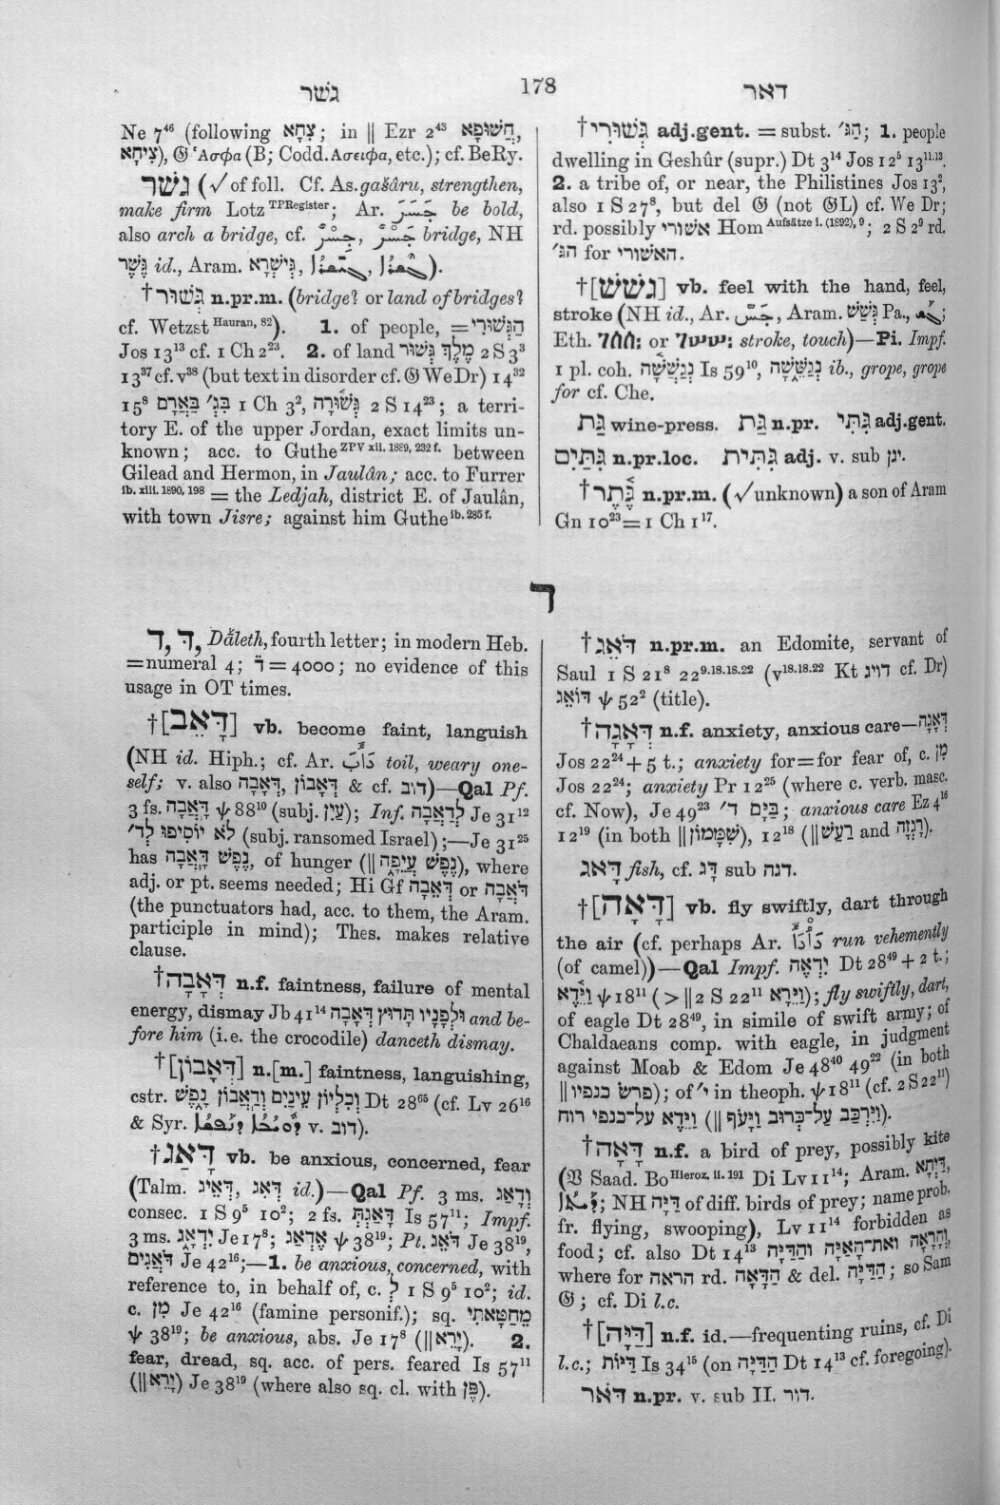 גשׁר
178
דאר
Ne 7⁴⁶ (following צִחָא; in ‖ Ezr 2⁴³ חֲשׂוּפָא,
צִיחָא), 𝔊 Ἀσφα (B; Codd. Ασειφα, etc.); cf. BeRy.
גשׁר (√ of foll. Cf. As. gašâru, strengthen,
make firm Lotz TP Register; Ar. جَسَرَ be bold,
also arch a bridge, cf. جَسْرٌ, جِسْرٌ bridge, NH
גֶּשֶׁר id., Aram. גִּישְׁרָא,).
†גְּשׁוּר n.pr.m. (bridge? or land of bridges?
cf. Wetzst Hauran, 82). 1. of people, =הַגְּשׁוּרִי
Jos 13¹³ cf. 1 Ch 2²³. 2. of land מֶלֶךְ גְּשׁוּר 2 S 3³
13³⁷ cf. v³⁸ (but text in disorder cf. 𝔊 We Dr) 14³²
15⁸ בִּגְ׳ בַּאֲרָם 1 Ch 3², גְּשׁוּרָה 2 S 14²³; a terri-
tory E. of the upper Jordan, exact limits un-
known; acc. to Guthe ZPV xii. 1889, 232 f. between
Gilead and Hermon, in Jaulân; acc. to Furrer
ib. xiii. 1890, 198 = the Ledjah, district E. of Jaulân,
with town Jisre; against him Guthe ib. 285 f.
†גְּשׁוּרִי adj.gent. = subst. הַגּ׳; 1. people
dwelling in Geshûr (supr.) Dt 3¹⁴ Jos 12⁵ 13¹¹·¹³.
2. a tribe of, or near, the Philistines Jos 13²,
also 1 S 27⁸, but del 𝔊 (not 𝔊L) cf. We Dr;
rd. possibly אשׁורי Hom Aufsätze i. (1892), 9; 2 S 2⁹ rd.
הגּ׳ for האשורי.
†[גשׁשׁ] vb. feel with the hand, feel,
stroke (NH id., Ar. جَسّ, Aram. גְּשַׁשׁ Pa.,;
Eth. or stroke, touch)—Pi. Impf.
1 pl. coh. נְגַשְׁשָׁה Is 59¹⁰, נְגַשֵּׁשָׁה ib., grope, grope
for cf. Che.
גַּת wine-press. גַּת n.pr. גִּתִּי adj.gent.
גִּתַּיִם n.pr.loc. גִּתִּית adj. v. sub ינן.
†גֶּתֶר n.pr.m. (√ unknown) a son of Aram
Gn 10²³ = 1 Ch 1¹⁷.
ד
ד, דּ, Dāleth, fourth letter; in modern Heb.
=numeral 4; ד̈ = 4000; no evidence of this
usage in OT times.
†[דָּאֵב] vb. become faint, languish
(NH id. Hiph.; cf. Ar. دَأَبَ toil, weary one-
self; v. also דְּאָבָה, דְּאָבוֹן, & cf. דוב)—Qal Pf.
3 fs. דָּאֲבָה ψ 88¹⁰ (subj. עַיִן); Inf. לְדַאֲבָה Je 31¹²
לֹא יוֹסִיפוּ לְד׳ (subj. ransomed Israel);—Je 31²⁵
has נֶפֶשׁ דָּאֲבָה, of hunger (‖ נֶפֶשׁ עֲיֵפָה), where
adj. or pt. seems needed; Hi Gf דְּאֵבָה or דֹּאֲבָה
(the punctuators had, acc. to them, the Aram.
participle in mind); Thes. makes relative
clause.
†דְּאָבָה n.f. faintness, failure of mental
energy, dismay Jb 41¹⁴ וּלְפָנָיו תָּדוּץ דְּאָבָה and be-
fore him (i.e. the crocodile) danceth dismay.
†[דְּאָבוֹן] n.[m.] faintness, languishing,
cstr. וְכִלְיוֹן עֵינַיִם וְדַאֲבוֹן נָפֶשׁ Dt 28⁶⁵ (cf. Lv 26¹⁶
& Syr. v. דוב).
†דָּאַג vb. be anxious, concerned, fear
(Talm. דְּאֵיג, דְּאַג id.)—Qal Pf. 3 ms. וְדָאַג
consec. 1 S 9⁵ 10²; 2 fs. דָּאַגְתְּ Is 57¹¹; Impf.
3 ms. יִדְאָג Je 17⁸; אֶדְאַג ψ 38¹⁹; Pt. דֹּאֵג Je 38¹⁹,
דֹּאֲגִים Je 42¹⁶;—1. be anxious, concerned, with
reference to, in behalf of, c. לְ 1 S 9⁵ 10²; id.
c. מִן Je 42¹⁶ (famine personif.); sq. מֵחַטָּאתִי
ψ 38¹⁹; be anxious, abs. Je 17⁸ (‖ יָרֵא). 2.
fear, dread, sq. acc. of pers. feared Is 57¹¹
(‖ יָרֵא) Je 38¹⁹ (where also sq. cl. with פֶּן).
†דֹּאֵג n.pr.m. an Edomite, servant of
Saul 1 S 21⁸ 22⁹·¹⁸·¹⁸·²² (v¹⁸·¹⁸·²² Kt דויג cf. Dr)
דּוֹאֵג ψ 52² (title).
†דְּאָגָה n.f. anxiety, anxious care—דְּאָגָה
Jos 22²⁴ + 5 t.; anxiety for=for fear of, c. מִן
Jos 22²⁴; anxiety Pr 12²⁵ (where c. verb. masc.
cf. Now), Je 49²³ בַּיָּם ד׳; anxious care Ez 4¹⁶
12¹⁹ (in both ‖ שִׁמָּמוֹן), 12¹⁸ (‖ רַעַשׁ and רָגְזָה).
דָּאג fish, cf. דָּג sub דגה.
†[דָּאָה] vb. fly swiftly, dart through
the air (cf. perhaps Ar. دَأْدَأَ run vehemently
(of camel))—Qal Impf. יִדְאֶה Dt 28⁴⁹ + 2 t.;
וַיֵּדֶא ψ 18¹¹ (> ‖ 2 S 22¹¹ וַיֵּרָא); fly swiftly, dart,
of eagle Dt 28⁴⁹, in simile of swift army; of
Chaldaeans comp. with eagle, in judgment
against Moab & Edom Je 48⁴⁰ 49²² (in both
‖ פרשׂ כנפיו); of י׳ in theoph. ψ 18¹¹ (cf. 2 S 22¹¹)
וַיֵּדֶא על־כנפי רוח (‖ וַיִּרְכַּב עַל־כְּרוּב וַיָּעֹף).
†דָּאָה n.f. a bird of prey, possibly kite
(𝔙 Saad. Bo Hieroz. ii. 191 Di Lv 11¹⁴; Aram. דַּיְתָא,
; NH דַּיָּה of diff. birds of prey; name prob.
fr. flying, swooping), Lv 11¹⁴ forbidden as
food; cf. also Dt 14¹³ וְהָרָאָה ואת־הָאַיָּה והדַּיָּה
where for הראה rd. הַדָּאָה & del. הַדַּיָּה; so Sam
𝔊; cf. Di l.c.
†[דַּיָּה] n.f. id.—frequenting ruins, cf. Di
l.c.; דַּיּוֹת Is 34¹⁵ (on הַדַּיָּה Dt 14¹³ cf. foregoing).
דֹּאר n.pr. v. sub II. דור.